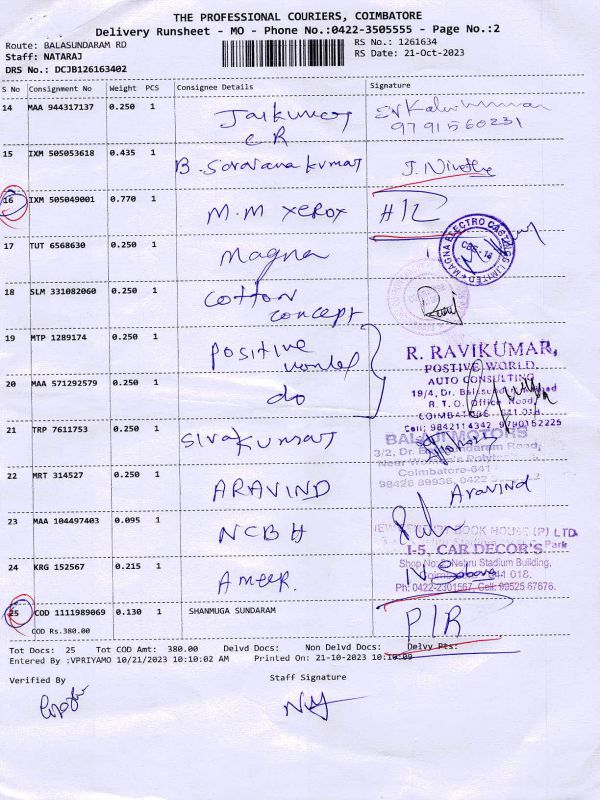 THE PROFESSIONAL COURIERS, COIMBATORE
Delivery Runsheet - MO - Phone No.:0422-3505555 - Page No.:2
Route: BALASUNDARAM RD
RS No.: 1261634
Staff: NATARAJ
RS Date: 21-Oct-2023
DRS No.: DCJB126163402
S No Consignment No Weight PCS Consignee Details Signature
14 MAA 944317137 0.250 1 Jaikumar
CR
9791560231
15 IXM 505053618 0.435 1 B. Saravana Kumar J. Nivetha
16 IXM 505049001 0.770 1 M.M Xerox #12
17 TUT 6568630 0.250 1 Magna
MAGNA ELECTRO CASTINGS LIMITED
CBE-18
18 SLM 331082060 0.250 1 Cotton
concept
19 MTP 1289174 0.250 1 Positive
world
R. RAVIKUMAR,
POSTIVE WORLD,
AUTO CONSULTING
19/4, Dr. Balasundaram
R.T.O. Office Road,
COIMBATORE - 641 018.
Cell: 9842114342 9790152225
20 MAA 571292579 0.250 1 do
21 TRP 7611753 0.250 1 Sivakumar
BALAJI MOTORS
3/2, Dr. Balasundaram Road,
Coimbatore-641
98426 89936, 0422
22 MRT 314527 0.250 1 ARAVIND Aravind
23 MAA 104497403 0.095 1 NCBH
BOOK HOUSE (P) LTD
Park
24 KRG 152567 0.215 1 Ameer.
I-5, CAR DECOR'S
Shop No: Nehru Stadium Building,
Coimbatore - 641 018.
Ph: 0422-2301567, Cell: 99525 67676.
25 COD 1111989069 0.130 1 SHANMUGA SUNDARAM P/R
COD Rs.380.00
Tot Docs: 25 Tot COD Amt: 380.00 Delvd Docs: Non Delvd Docs: Delvy Pts:
Entered By :VPRIYAMO 10/21/2023 10:10:02 AM Printed On: 21-10-2023 10:10:09
Verified By
Staff Signature